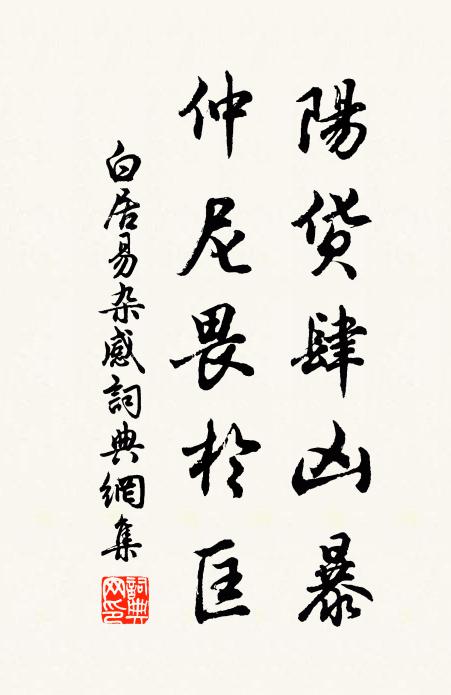 陽貨肆凶暴
仲尼畏於匡
白居易杂感詞典網集
詞典
网印